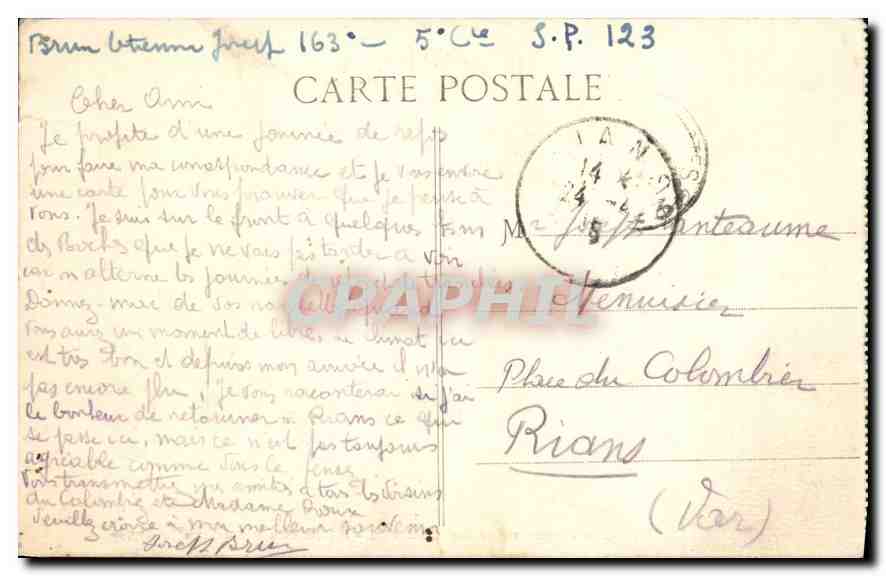 Brun Etienne Joseph 163° – 5° Cie S.P. 123
CARTE POSTALE
Cher Ami
Je profite d'une journée de repos
pour faire ma correspondance et je vous envoie
une carte pour vous prouver que je pense à
vous. Je suis sur le front à quelques
des Boches que je ne vais pas tarder à voir
car on alterne les journées de
Donnez-moi de vos
vous aurez un moment de libre, le climat ici
est très bon et depuis mon arrivée il n'a
pas encore plu, Je vous raconterai si j'ai
le bonheur de retourner à Rians ce qui
se passe ici, mais ce n'est pas toujours
agréable comme vous le pensez
Vous transmettrez mes amitiés à tous les voisins
du Colombier et à Madame
Veuillez croire à mon meilleur souvenir
Joseph Brun
RIANS
14
24 -4
15
CPAPHIL
Mr Joseph Panteaume
Menuisier
Place du Colombier
Rians
(Var)